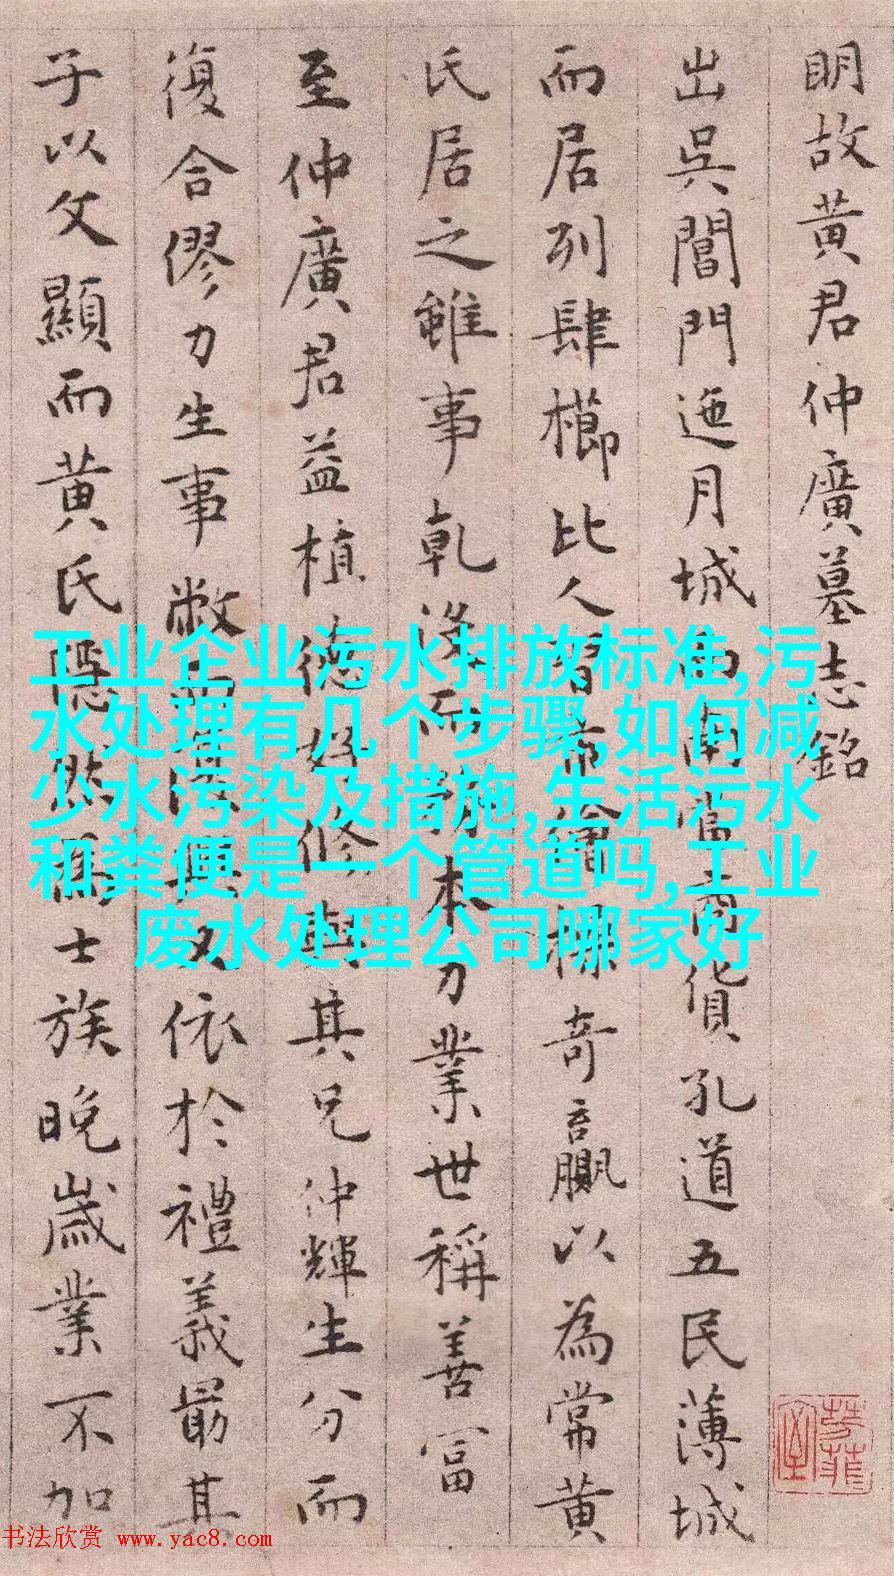 明故黄君仲廣墓志銘
出吳閶門迤月城南當商貨孔道五民薄城
而居列肆櫛比人習市儈操奇贏以為常黄
氏居之雖事乾没而本分業世稱善富
至仲廣君益植德好修與其兄仲輝生分而
復合僇力生事敝又依於禮義最其
子以文顯而黄氏隱然為士族晚歲業不加
工业企业污水排放标准,污
水处理有几个步骤,如何减
少水污染及措施,生活污水
和粪便是一个管道吗,工业
废水处理公司哪家好
书法欣赏 www.yac8.com